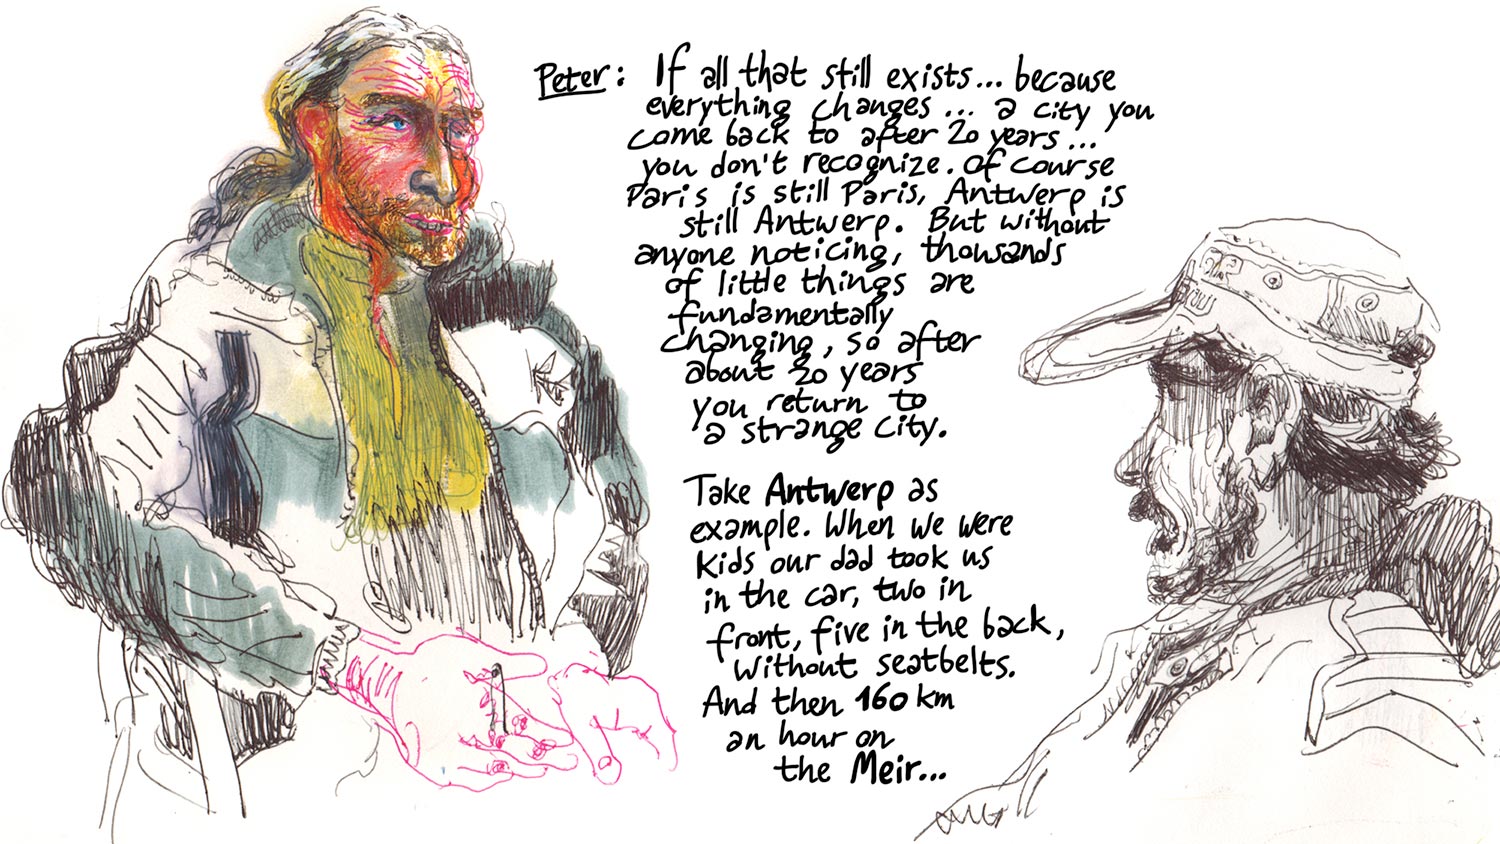 Peter: If all that still exists... because
everything changes... a city you
come back to after 20 years...
you don't recognize. Of course
Paris is still Paris, Antwerp is
still Antwerp. But without
anyone noticing, thousands
of little things are
fundamentally
changing, so after
about 20 years
you return to
a strange city.
Take Antwerp as
example. When we were
kids our dad took us
in the car, two in
front, five in the back,
without seatbelts.
And then 160 km
an hour on
the Meir...